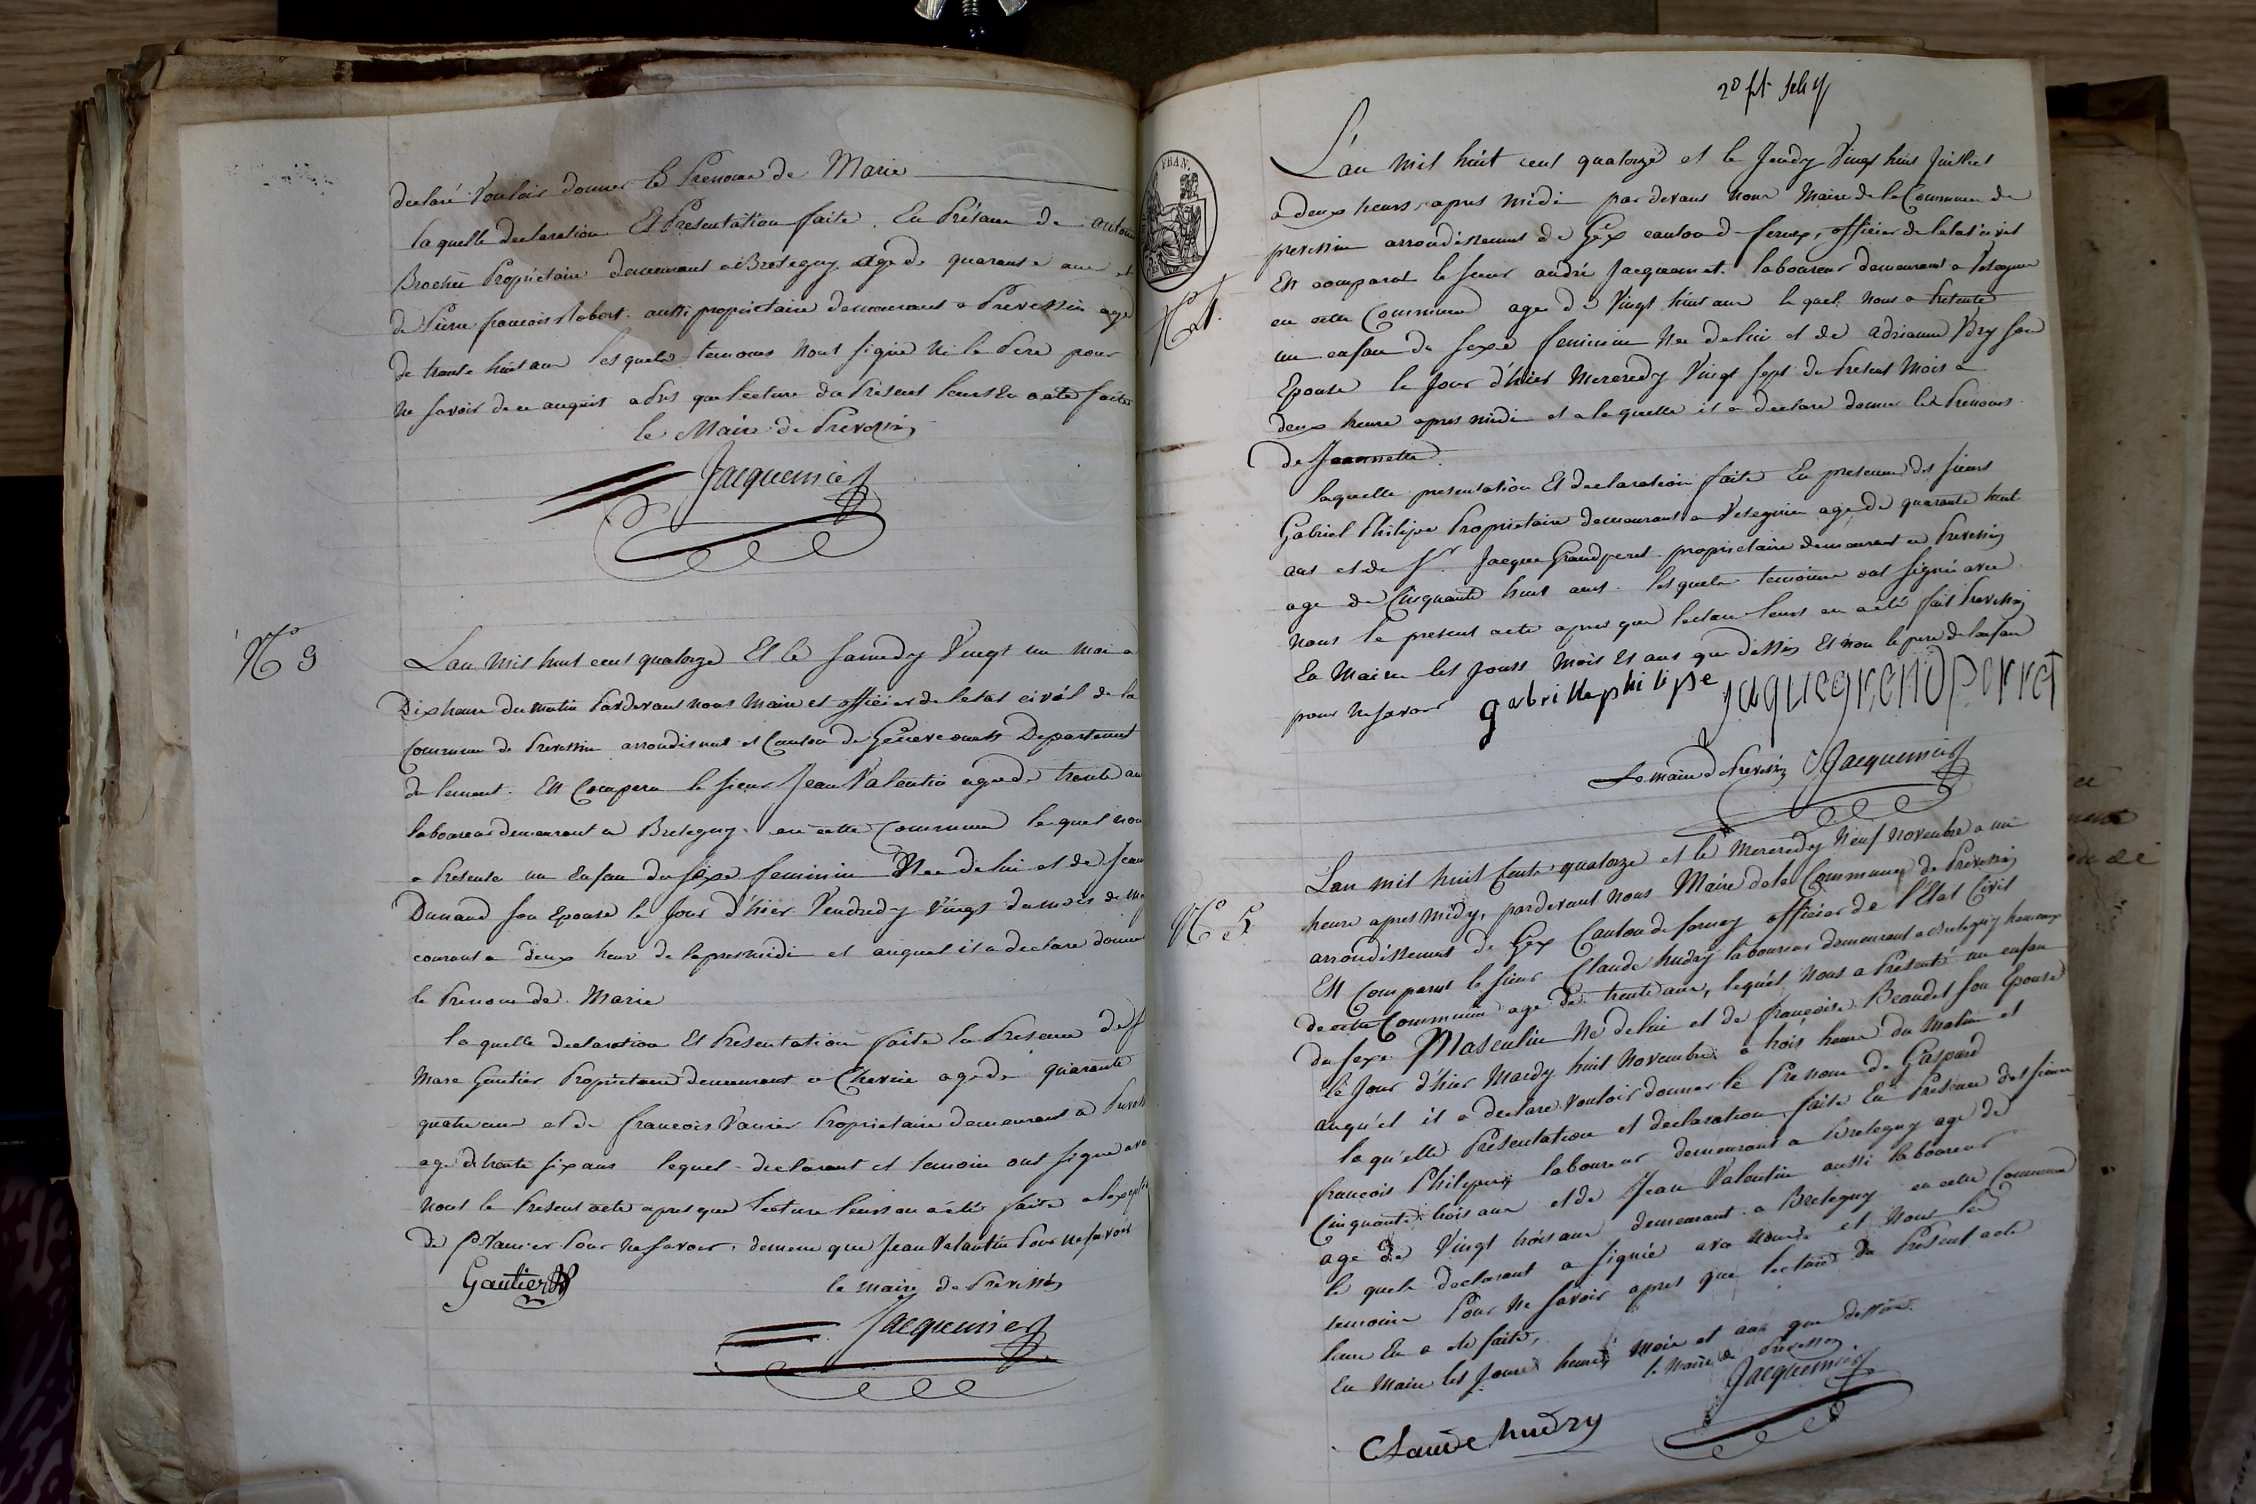 declaré Vouloir donner le Prenom de Marie
laquelle declaration Et Presentation faite En Présence de
Brochu Propriétaire demeurant a Bretegny agé de quarante ans et
de Pierre francois Robert aussi propriétaire demeurant a Prevessin agé
de trante huit ans lesquels temoins nont signé ni le Pere pour
ne savoir de ce anquis après que lecture du Présent leurs En a été faite
le Maire de Prevessin
Jacquemier
N° 3
Lan mil huit cent quatorze Et le samedy Vingt un mai a
Dix heure du matin Pardevant nous Maire et officier de letat civil de la
Commune de Prevessin arrondisment et Canton de Geneve Departement
du lement. Est Comparu le sieur Jean Valentin agé de trente ans
laboureur demeurant a Bretegny en cette Commune lequel nous
a Presente un Enfan du sexe feminin Née de lui et de Jean
Dunand son Epouse le Jour d'hier Vendredy Vingt du mois de
courant a deux heur de lapresmidi et auquel il a declare donner
le Prenom de Marie
laquelle declaration Et Présentation faite En Presence de
Marc Gautier Propriétaire demeurant a Chevrie agé de quarante
quatre ans et de francois Vanier Propriétaire demeurant a
age de trente six ans lequel declarant et temoin ont signe avec
nous le Présent acte apres que lecture leurs en a été faite
de Sr Vanier Pour ne savoir, de meme que Jean Valantin Pour ne savoir
Gautier
le maire de Prevessin
Jacquemier
FRAN.
L'an mil huit cent quatorze et le Jeudy Vingt huit Juillet
a deux heurs apres midi pardevans nous Maire de la Commune de
prevessin arrondissement de Gex canton de fernex, officier de letat civil
Est comparut le sieur andré Jacquemet laboureur demeurant a
en cette Commune age de Vingt huit ans le quel nous a Presenté
un enfan de sexe feminin Née de lui et de adrianne Vdry son
Epouse le Jour d'hier Mercredy Vingt sept du Présent Mois a
deux heure apres midi et a laquelle il a declaré donner les Prénoms
de Jeannette
N° 4.
laquelle presentation Et declaration faite En presence des sieurs
Gabriel Philipe Propriétaire demeurant a Vesegnin age de quarante huit
ans et de Sr. Jacque Grandperret propriétaire demeurant a Prevessin
age de Cinquante huit ans. lesquels temoins ont signés avec
nous le present acte apres que lecture leurs en a été fait Prevessin
En Mairie les jours Mois Et ans que dessus Et non le pere de lenfan
pour ne savoir gabrillephilipe jaquegrendperret
Le maire de Prevessin Jacquemier
N° 5
Lan mil huit Cents quatorze et le Mercredy Neuf Novembre a une
heure apres Midy, pardevant nous Maire de la Commune de Prevessin
arrondissement de Gex Canton de ferney officier de l'Etat Civil
Est Comparut le sieur Claude hudry laboureur demeurant a Bretegny hameaux
de cette Commune age de trente ans, lequel nous a Présenté un enfan
du sexe Masculin Né de lui et de francoise Beaudet son Epouse
le Jour d'hier Mardy huit Novembre a trois heure du Matin et
auquel il a declare vouloir donner le Prenom de Gaspard
laquelle Présentation et declaration faite En Présence des sieurs
francois Philipe laboureur demeurant a Bretegny age de
Cinquante trois ans et de Jean Valentin aussi laboureur
age de Vingt trois ans demeurant a Bretegny en cette Commune
le quels declarant a signée avec nous et Nous les
temoins Pour ne savoir apres que lecture du Présent acte
leur En a été faite,
En Mairie les Jours heures Mois et ans que dessus.
le Maire de Prevessin
Jacquemier
Claude hudry